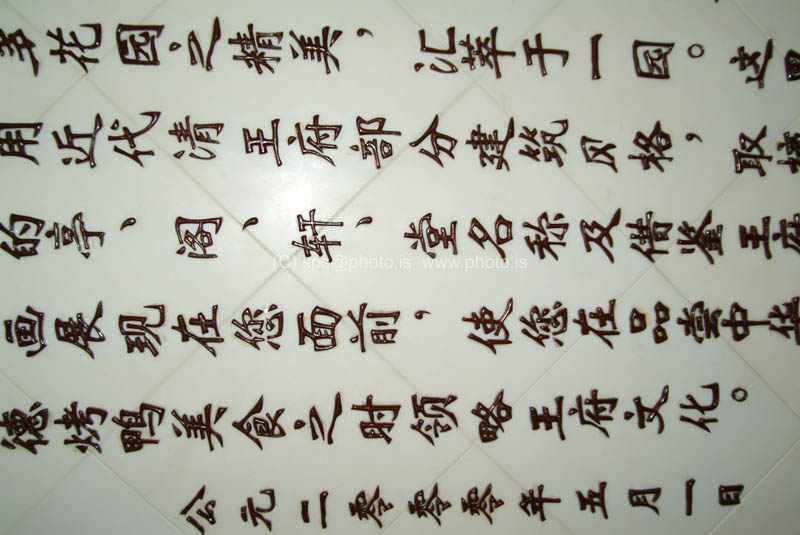 花园之精美，汇萃于一园。这
用近代清王府部分建筑风格，取
的亭、阁、轩、堂名称及借鉴王府
画展现在您面前，使您在品尝中
德烤鸭美食之时领略王府文化。
公元二零零零年五月一日
(C) kps@photo.is www.photo.is